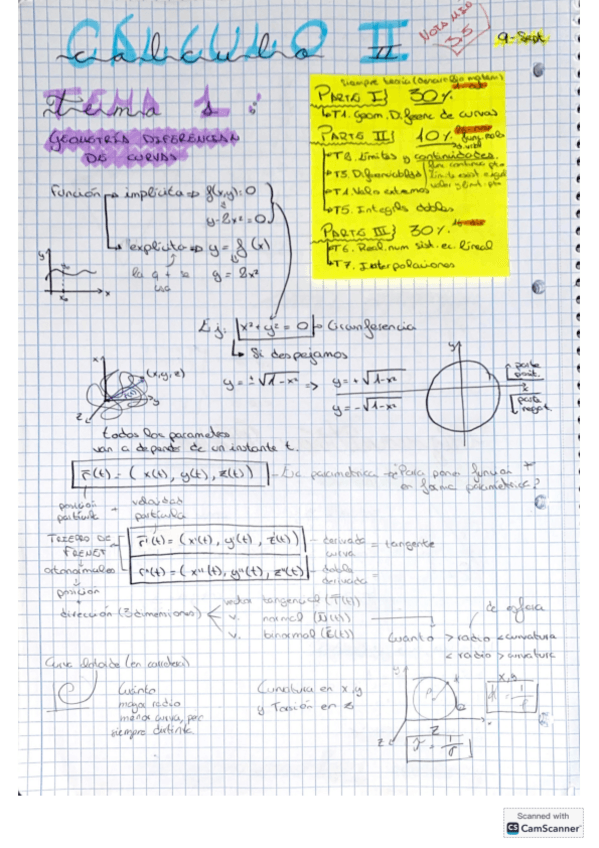 CÁLCULO II
Nota min 3.5
9-Sept
TEMA 1:
GEOMETRÍA DIFERENCIAL
DE CURVAS
PARTE I} 30%
T1. Geom. D. ferenc de curvas
PARTE II} 10%
Límites y continuidades
T5. Diferenciables
T.1 Valos extremos
T5. Integrles dobles
PARTE III} 30%
T6. Resol. num sist. ec. lineal
T7. Interpolaciones
Función → implícita ⇒ f(x,y)=0
y-2x²=0
explícita ⇒ y = f(x)
la q + se usa y = 2x²
y
x₀
x
Ej: x²+y²=0 → Circunferencia
Si despejamos
y = ±√1-x² ⇒ y = +√1-x²
y = -√1-x²
parte posit.
parte negat.
(x,y,z)
todos los parametros
van a depender de un instante t.
r(t) = (x(t), y(t), z(t)) - Ec parametrica → ¿Para poner funcion
en forma parametrica?
posición partícula
velocidad partícula
TRIEDRO DE FRENET
r'(t) = (x'(t), y'(t), z'(t)) - derivada curva = tangente
ortonormales
r''(t) = (x''(t), y''(t), z''(t)) - doble derivada =
posición
+
dirección (3 dimensiones)
vector tangencial (T(t))
v. normal (N(t))
v. binormal (B(t))
de esfera
Cuanto > radio < curvatura
< radio > curvatura
Curva clotoide (en carretera)
Cuánto
mayor radio
menor curva, pero
siempre distinta
Curvatura en x,y
y Torsión en z
x,y
z
Scanned with
CS CamScanner